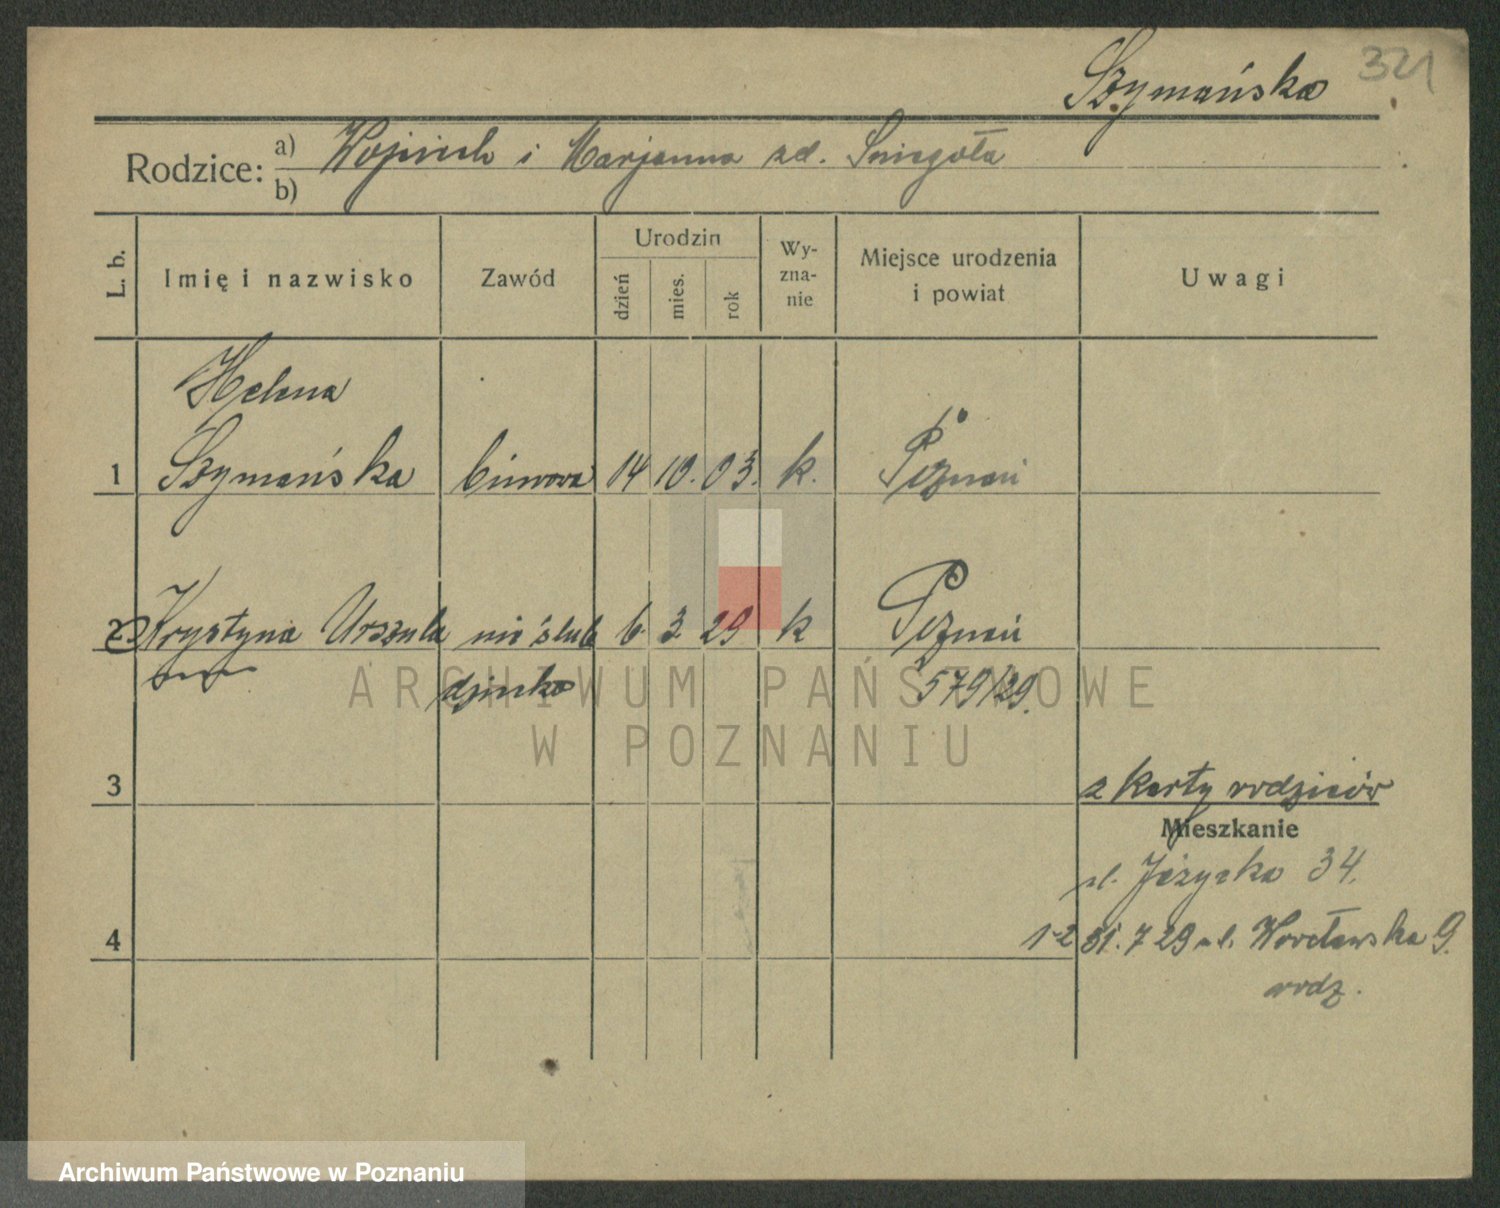 Szymańska 321
Rodzice: a) Wojciech i Marjanna zd. Śniegóła
b)
L. b. Imię i nazwisko Zawód Urodzin dzień mies. rok Wy-zna-nie Miejsce urodzenia i powiat Uwagi
Helena
1 Szymańska biurowa 14 10. 03. k. Poznań
2 Krystyna Urszula nieślub 6. 3. 29 k Poznań
dziecko 579/29.
ARCHIWUM PAŃSTWOWE
W POZNANIU
3 z karty rodziców
Mieszkanie
ul. Jeżycka 34.
4 1-2 31. 7 29 ul. Wrocławska 9.
rodz.
Archiwum Państwowe w Poznaniu